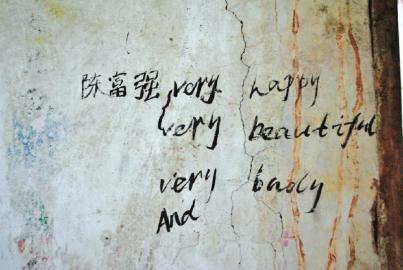 陈富强 very happy
very beautiful
very bady
And